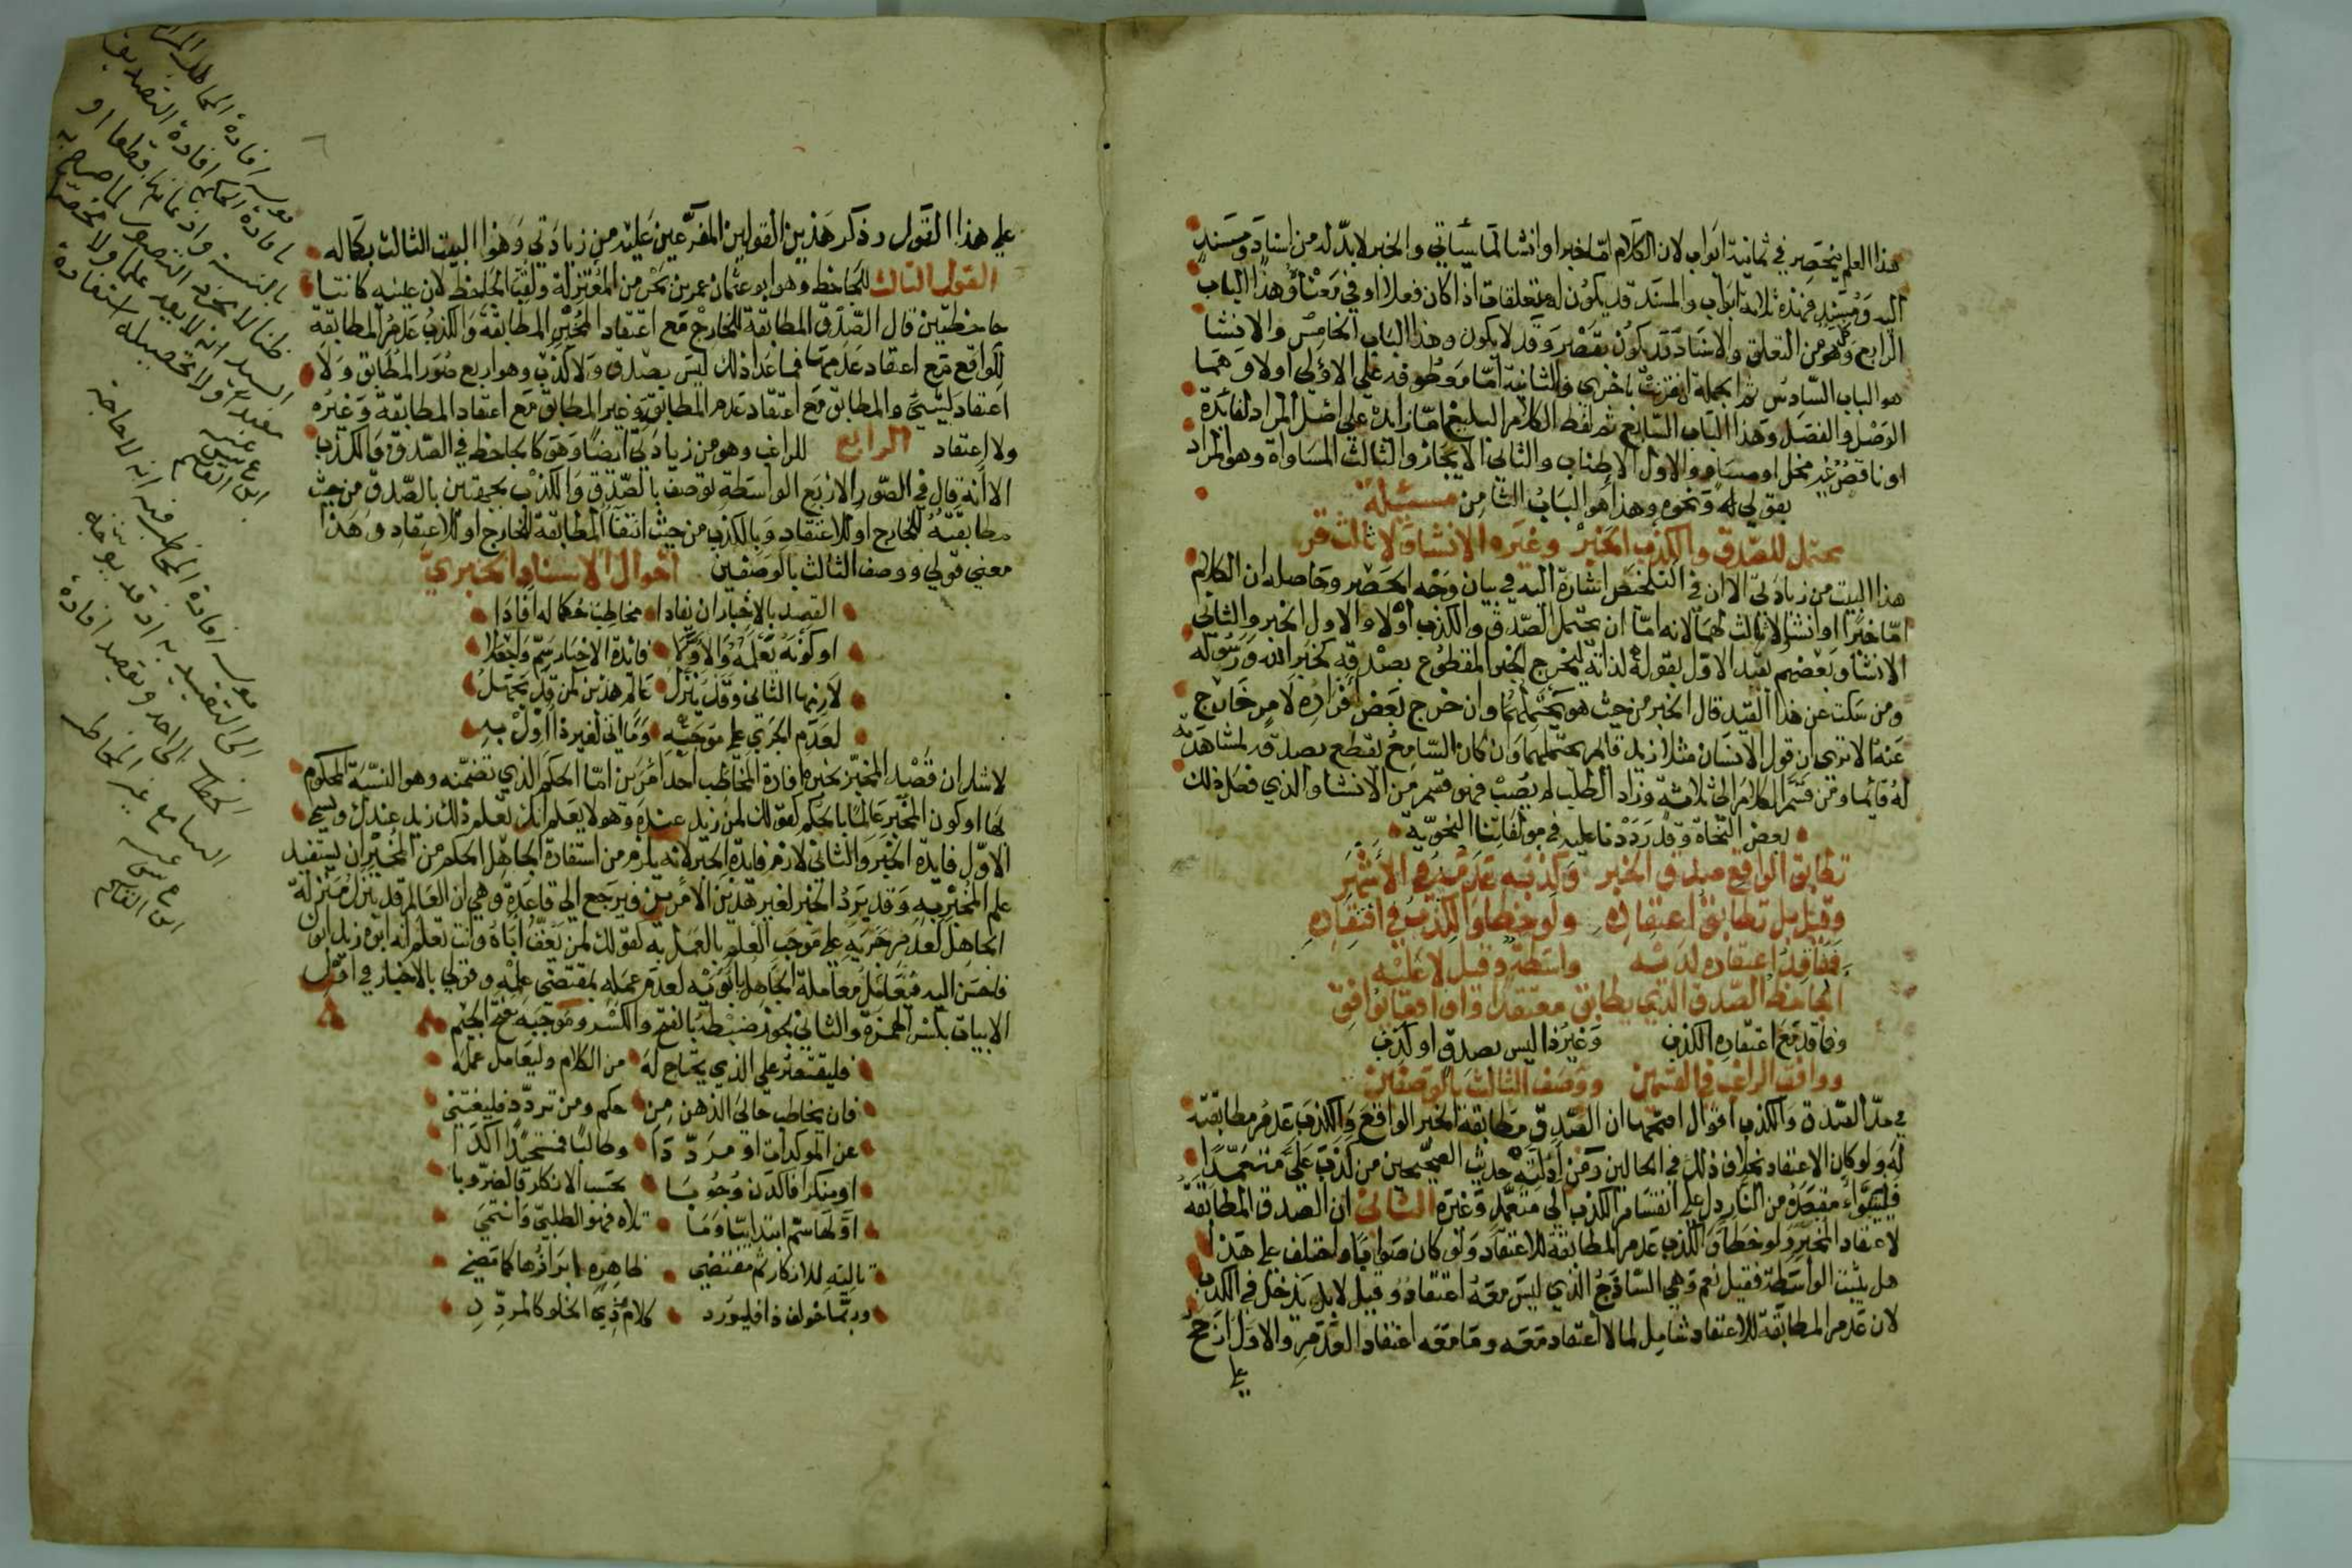 هذا العلم ينحصر في ثمانية ابواب لان الكلام اما خبر او انشا لما سياتي والخبر لا بد له من اسناد ومسند
اليه ومسند فهذه ثلاثة ابواب والمسند قد يكون له متعلقات اذا كان فعلا او في معناه وهذا الباب
الرابع وكل من التعلق والاسناد قد يكون بقصر وقد لا يكون وهذا الباب الخامس والانشا
هو الباب السادس ثم الجملة ان قرنت باخرى فالثانية اما معطوفة على الاولى اولا وهما
الوصل والفصل وهذا الباب السابع ثم لفظ الكلام البليغ اما زايد على اصل المراد لفائدة
او ناقص غير مخل او مساو والاول الاطناب والثاني الايجاز والثالث المساواة وهو المراد
بقولي له ونحوه وهذا هو الباب الثامن مسئلة
محتمل للصدق والكذب الخبر وغيره الانشا ولا ثالث قر
هذا البيت من زيادتي الا ان في التلخيص اشارة اليه في بيان وجه الحصر وحاصله ان الكلام
اما خبر او انشا لا ثالث لهما لانه اما ان يحتمل الصدق والكذب اولا والاول الخبر والثاني
الانشا وبعضهم يقيد الاول بقوله لذاته ليخرج الخبر المقطوع بصدقه كخبر الله ورسوله
ومن سكت عن هذا القيد قال الخبر من حيث هو يحتملهما وان خرج بعض افراده لامر خارج
عنه الا ترى ان قول الانسان مثلا زيد قايم يحتملهما وان كان السامع يقطع بصدقه لمشاهدته
له قائما ومن قسم الكلام الى ثلاثة وزاد الطلب لم يصب فهو قسم من الانشا والذي فعل ذلك
بعض النحاة وقد رددنا عليه في مولفاتنا النحوية
تطابق الواقع صدق الخبر وكذبه عدمه في الاشهر
وقيل بل تطابق اعتقاده ولو خطا والكذب في افتقاده
ففاقد اعتقاده لديه واسطة وقيل لا عليه
الجاحظ الصدق الذي يطابق معتقدا وواقعا يوافق
وفاقد مع اعتقاده الكذب وغير ذا ليس بصدق او كذب
ووافق الراغب في القسمين ووصف الثالث بالوصفين
في حد الصدق والكذب اقوال اصحها ان الصدق مطابقة الخبر الواقع والكذب عدم مطابقته
له ولو كان الاعتقاد بخلاف ذلك في الحالين ومن ادلته حديث الصحيحين من كذب علي متعمدا
فليتبوا مقعده من النار دل على انقسام الكذب الى متعمد وغيره الثاني ان الصدق المطابقة
لاعتقاد المخبر ولو خطا والكذب عدم المطابقة للاعتقاد ولو كان صوابا واختلف على هذا
هل يثبت الواسطة فقيل نعم وهي الساذج الذي ليس معه اعتقاد وقيل لا بل يدخل في الكذب
لان عدم المطابقة للاعتقاد شامل لما لا اعتقاد معه وما معه اعتقاد العدم والاول ارجح
على
على هذا القول وذكر هذين القولين المفرعين عليه من زيادتي وهذا البيت الثالث بكماله
القول الثالث للجاحظ وهو ابو عثمان عمرو بن بحر من المعتزلة ولقب الجاحظ لان عينيه كانتا
جاحظتين قال الصدق المطابقة للخارج مع اعتقاد المخبر المطابقة والكذب عدم المطابقة
للواقع مع اعتقاد عدمها فما عدا ذلك ليس بصدق ولا كذب وهو اربع صور المطابق ولا
اعتقاد لشي والمطابق مع اعتقاد عدم المطابقة وغير المطابق مع اعتقاد المطابقة وغيره
ولا اعتقاد الرابع للراغب وهو من زيادتي ايضا وهو كالجاحظ في الصدق والكذب
الا انه قال في الصور الاربع الواسطة توصف بالصدق والكذب بجهتين بالصدق من حيث
مطابقته للخارج او للاعتقاد وبالكذب من حيث انتفا المطابقة للخارج او للاعتقاد وهذا
معنى قولي ووصف الثالث بالوصفين احوال الاسناد الخبري
القصد بالاخبار ان يفادا مخاطب حكما له افادا
او كونه يعلمه والاول فائدة الاخبار سم واجعلا
لازمها الثاني وقد ينزل عالم هذين كمن قد يجهل
لعدم الجري على موجبه وما اتى لغير ذا اول به
لا شك ان قصد المخبر بخبره افادة المخاطب احد امرين اما الحكم الذي تضمنه وهو النسبة المحكوم
لها او كون المخبر عالما بالحكم كقولك لمن زيد عنده وهو لا يعلم انك تعلم ذلك زيد عندك ويسمى
الاول فايدة الخبر والثاني لازم فايدة الخبر لانه يلزم من استفادة الجاهل الحكم من المخبر ان يستفيد
علم المخبر به وقد يرد الخبر لغير هذين الامرين فيرجع الى قاعدة وهي ان العالم قد ينزل منزلة
الجاهل لعدم جريه على موجب العلم بالعمل به كقولك لمن يعق اباه وانت تعلم انه ابوه زيد ابوك
فاحسن اليه فتعامل معاملة الجاهل بابوته لعدم عمله بمقتضى علمه وقولي بالاخبار في اول
الابيات بكسر الهمزة والثاني يجوز ضبطه بالفتح والكسر وموجبه بفتح الجيم
فليقتصر على الذي يحتاج له من الكلام وليعامل عمله
فان يخاطب خالي الذهن من حكم ومن تردد فليغتني
عن المؤكدات او مرددا وطالبا فمستجيدا اكدا
او منكرا فاكدن وجوبا بحسب الانكار فالضروبا
اولها سم ابتدائيا وما تلاه فهو الطلبي وانتمى
تاليه للانكار ثم مقتضى ظاهره ايرادها كما مضى
وربما خولف ذا فليورد كلام ذي الخلو كالمردد
قوله افادة المخاطب
افادة الحكم افادة التصديق
بالنسبة واذعانها قطعا او
ظنا لا مجرد التصور لما صرح به
السيد انه لا يعد علما
عرفا ولا تحصيله استفادة
ابن القاسم
قوله افادة المخاطب فيه انه لا حاجة
الى التقييد به اذ قد يوجه
الخطاب الى احد ويقصد افادة
السامع غير المخاطب
ابن القاسم